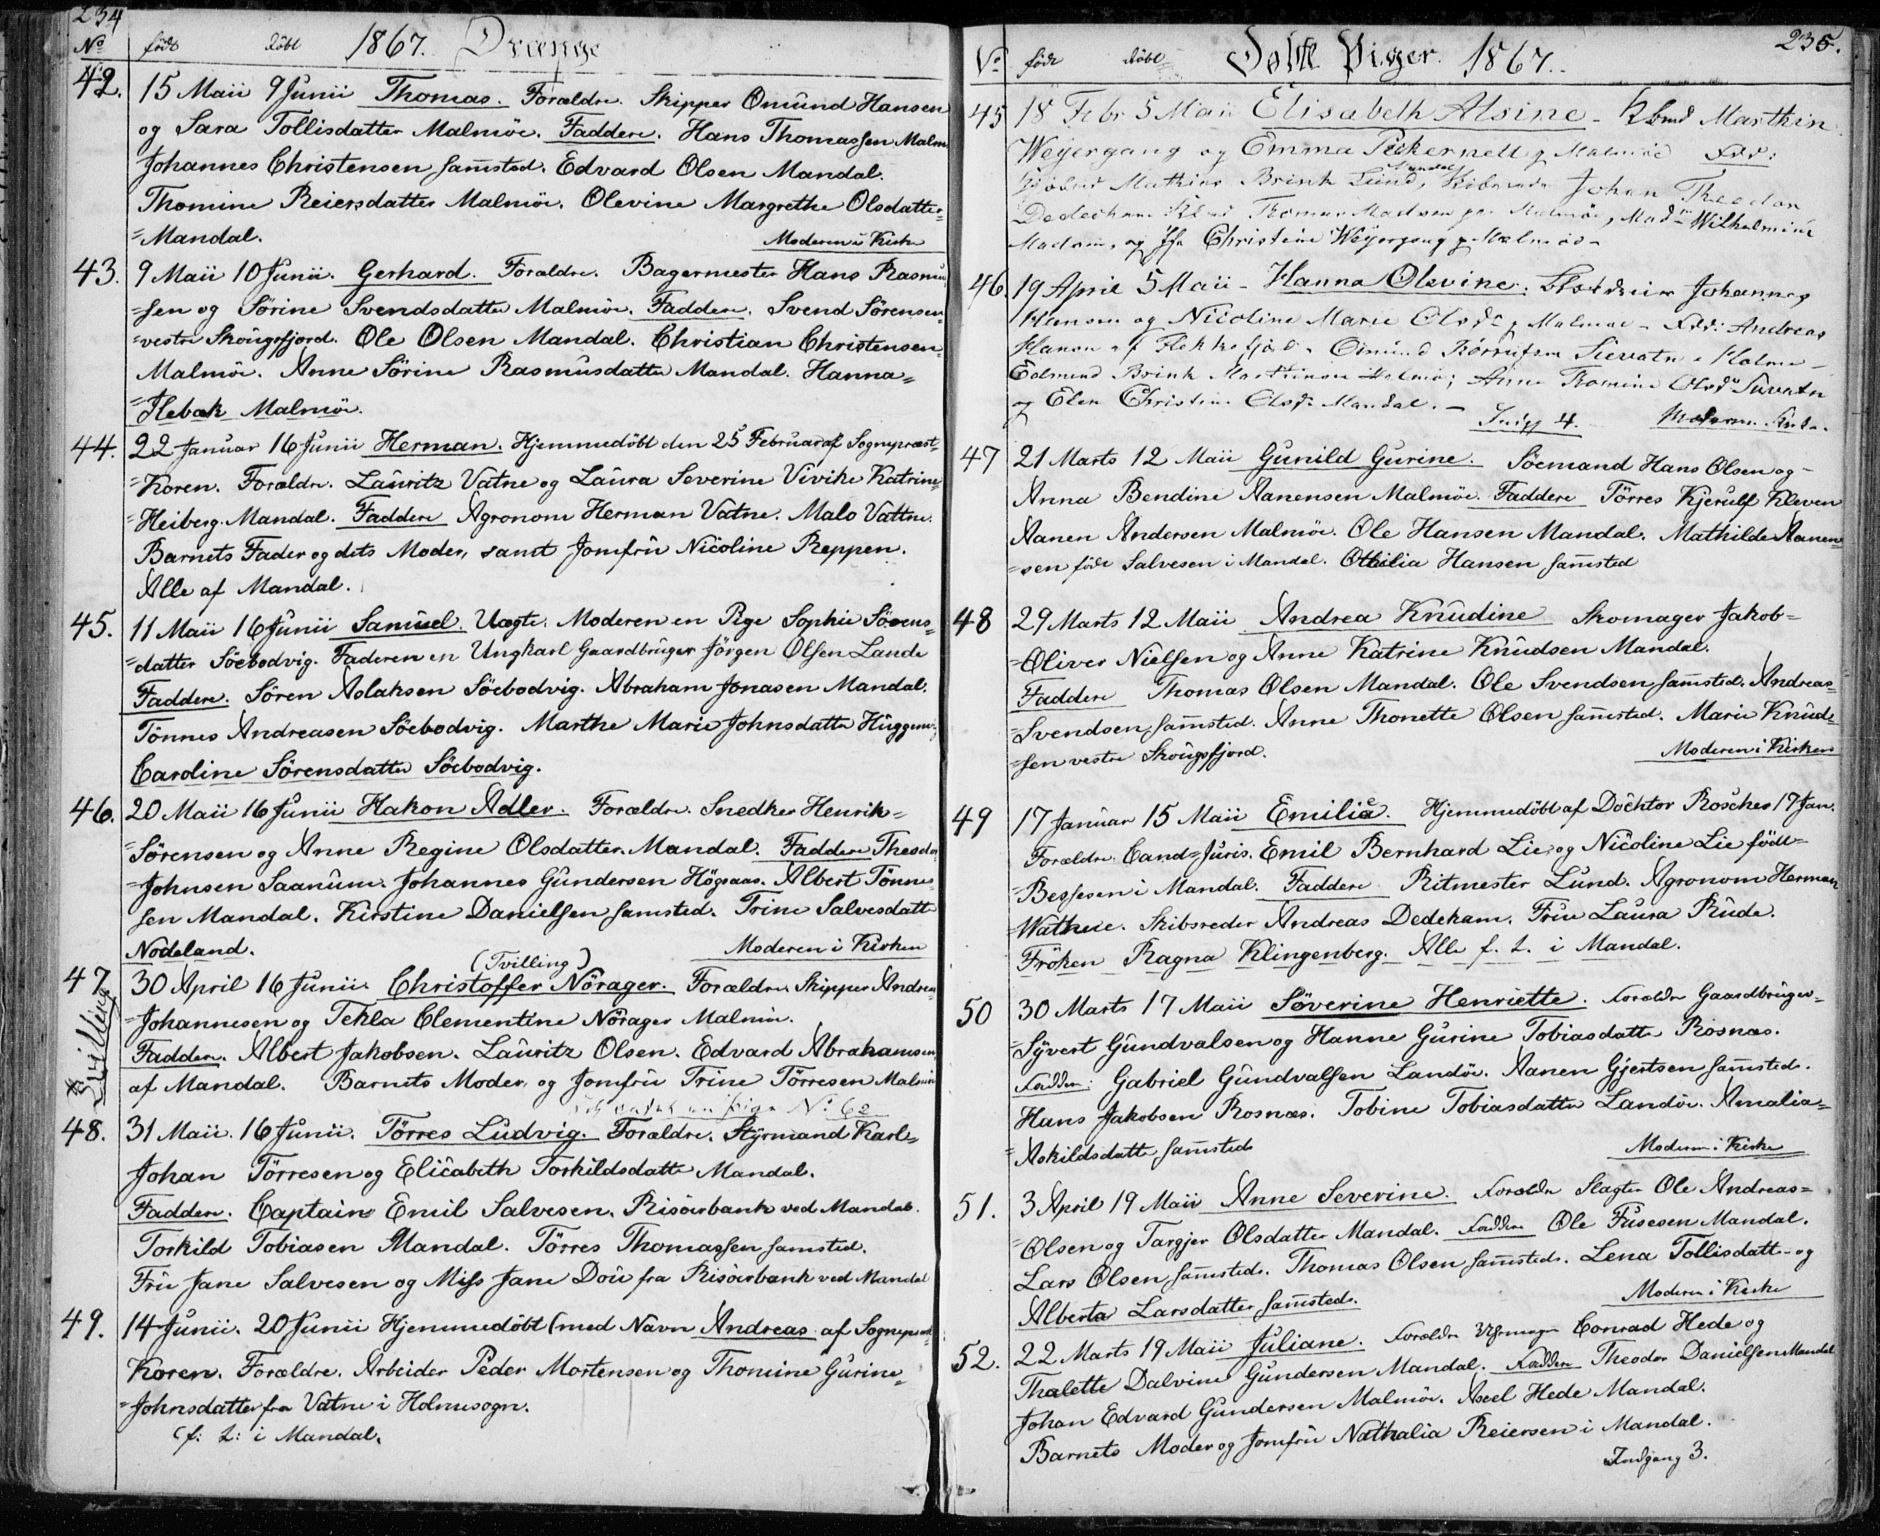 234
No født døbt 1867. Drenge
42. 15 Maii 9 Junii Thomas. Forældre. Skipper Omund Hansen
og Sara Tollisdatter Malmöe. Faddere. Hans Thomassen Malm
Johannes Christensen sam̄sted. Edvard Olsen Mandal.
Thomine Reiersdatter Malmöe. Olevine Margrethe Olsdatter=
=Mandal. Moderen i Kirke
43. 9 Maii 10 Junii. Gerhard. Forældre. Bagermester Hans Rasmus
=sen og Sörine Svendsdatter Malmöe. Faddere. Svend Sörensen=
=vestre Skougsfjord. Ole Olsen Mandal. Christian Christensen=
Malmöe. Anne Sörine Rasmusdatter Mandal. Hanna=
=Ilebæk Malmöe.
44. 22 Januar 16 Junii Herman. Hjemmedöbt den 25 Februar af Sognepræst=
=Koren. Forældre. Lauritz Vatne og Laura Severine Vivike Katrine=
=Heiberg. Mandal. Faddere Agronom Herman Vatne. Malo Vattne.
Barnets Fader og dets Moder, samt Jomfru Nicoline Reppen.
Alle af Mandal.
45. 11 Maii 16 Junii Samuel. Uægte. Moderen en Pige Sophie Sörens=
=datter Söebodvig. Faderen en Ungkarl Gaardbruger Jörgen Olsen Lande
Faddere. Sören Aslaksen Söebodvig. Abraham Jonasen Mandal.
Tönnes Andreasen Söebodvig. Marthe Marie Johnsdatter
Caroline Sörensdatter Söebodvig.
46. 20 Maii 16 Junii Hakon Adler. Forældre. Snedker Henrik=
=Sörensen og Anne Regine Olsdatter. Mandal. Faddere Theodor
=Johnsen Saanum. Johannes Gundersen Högsaas. Albert Tönne=
sen Mandal. Kirstine Danielsen samsted. Trine Salvesdatter
Nodeland. Moderen i Kirken
(Tvilling)
47. 30 April 16 Junii. Christoffer Nörager. Forældre Skipper Andreas
=Johannesen og Tekla Clementine Nörager Malmöe.
Tvilling
Faddere. Albert Jakobsen. Lauritz Olsen. Edvard Abrahamsen
af Mandal. Barnets Moder, og Jomfru Trine Törresen Malmöe
No 62
48. 31 Maii. 16 Junii. Törres Ludvig. Forældre. Styrmand Karl=
Johan Törresen og Elisabeth Torkildsdatter Mandal.
Faddere. Captain Emil Salvesen. Risöerbank ved Mandal.
Torkild Tobiasen Mandal. Törres Thomassen samsted.
Fru Jane Salvesen og Miss Jane Dou fra Risöerbank ved Mandal
49. 14 Junii. 20 Junii Hjemmedöbt (med Navn Andreas. af Sognepræst
Koren. Forældre. Arbeider Peder Mortensen og Thomine Gurine=
=Johnsdatter fra Vatne i Holmesogn.
(f: L: i Mandal.
235.
No født døbt Döbte Piger. 1867.
45 18 Febr 5 Maii Elisabeth Alsine - Marthin
Weyergang og Emma Pickernell p Malmöe Fad:
Mathias Brink Lund, Johan Theodor
Dedekam. Thomas Madsen p Malmöe, Madm Wilhelmine
Madsen, og Jfr Christine Weyergang p Malmöe -
46. 19 April 5 Maii - Hanna Olevine. Johannes
Hansen og Nicoline Marie Olsdr p Malmöe - Fad: Andreas
Hanson af Flekkefjord. Omund
Edmund Brink Malmöe; Anne Tomine Olsdr
og Elen Christine Olsdr Mandal. -
Indg 4. Moderen i Kirke.
47 21 Marts 12 Maii Gunild Gurine. Söemand Hans Olsen og -
Anna Bendine Aanensen Malmöe. Faddere Törres Kjerulf Kleven
Aanen Andersen Malmöe. Ole Hansen Mandal. Mathilde Aanen=
=sen födt Salvesen i Mandal. Othilia Hansen sam̄sted
48 29 Marts 12 Maii Andrea Knudine Skomager Jakob=
=Oliver Nielsen og Anne Katrine Knudsen Mandal.
Faddere Thomas Olsen Mandal. Ole Svendsen sam̄sted. Andreas=
=Svendsen sam̄sted. Anne Thonette Olsen sam̄sted. Marie Knud=
=sen vestre Skougsfjord. Moderen i Kirken
49 17 Januar 15 Maii Emilie. Hjemmedöbt af Dochtor Roscher 17 Jan.
Forældre. Cand=Juris. Emil Bernhard Lie, og Nicoline Lie född=
=Bessesen i Mandal. Faddere Ritmester Lund. Agronom Herman
=Wathne. Skibsreder Andreas Dedekam. Frue Laura Rude.
Fröken Ragna Klingenberg. Alle f. L. i Mandal.
50 30 Marts 17 Maii Söverine Henriette. Forældre Gaardbruger=
=Syvert Gundvalsen og Hanne Gurine Tobiasdatter Rosnæs.
Faddere: Gabriel Gundvalsen Landöe. Aanen Gjertsen samsteds.
Hans Jakobsen Rosnæs. Tobine Tobiasdatter Landöe. Amalia=
=Askildsdatter samsteds Moderen i Kirke
51. 3 April 19 Maii Anne Severine. Forældre Slagter Ole Andreas=
=Olsen og Targjer Olsdatter Mandal. Faddere Ole Fusesen Mandal.
Lars Olsen sam̄steds. Thomas Olsen sam̄steds. Lena Tollisdatter og
Alberta Larsdatter sam̄sted. Moderen i Kirke
52. 22 Marts 19 Maii Juliane. Forældre Uhrmager Conrad Hede og
Thalette Dalvine Gundersen Mandal. Faddere Theodor Danielsen Mandal
Johan Edvard Gundersen Malmöe. Axel Hede Mandal.
Barnets Moder og Jomfru Nathalia Reiersen i Mandal.
Indgang 3.